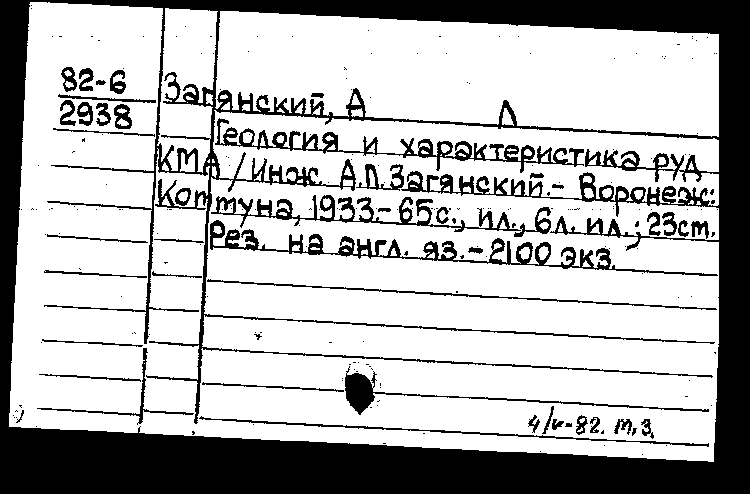 82-6
2938
Загянский, А Л
Геология и характеристика руд
КМА / Инж. А.Л. Загянский. - Воронеж:
Коммуна, 1933. - 65с., ил., 6л. ил.; 23см.
Рез. на англ. яз. - 2100 экз.
4/V-82. т.з.